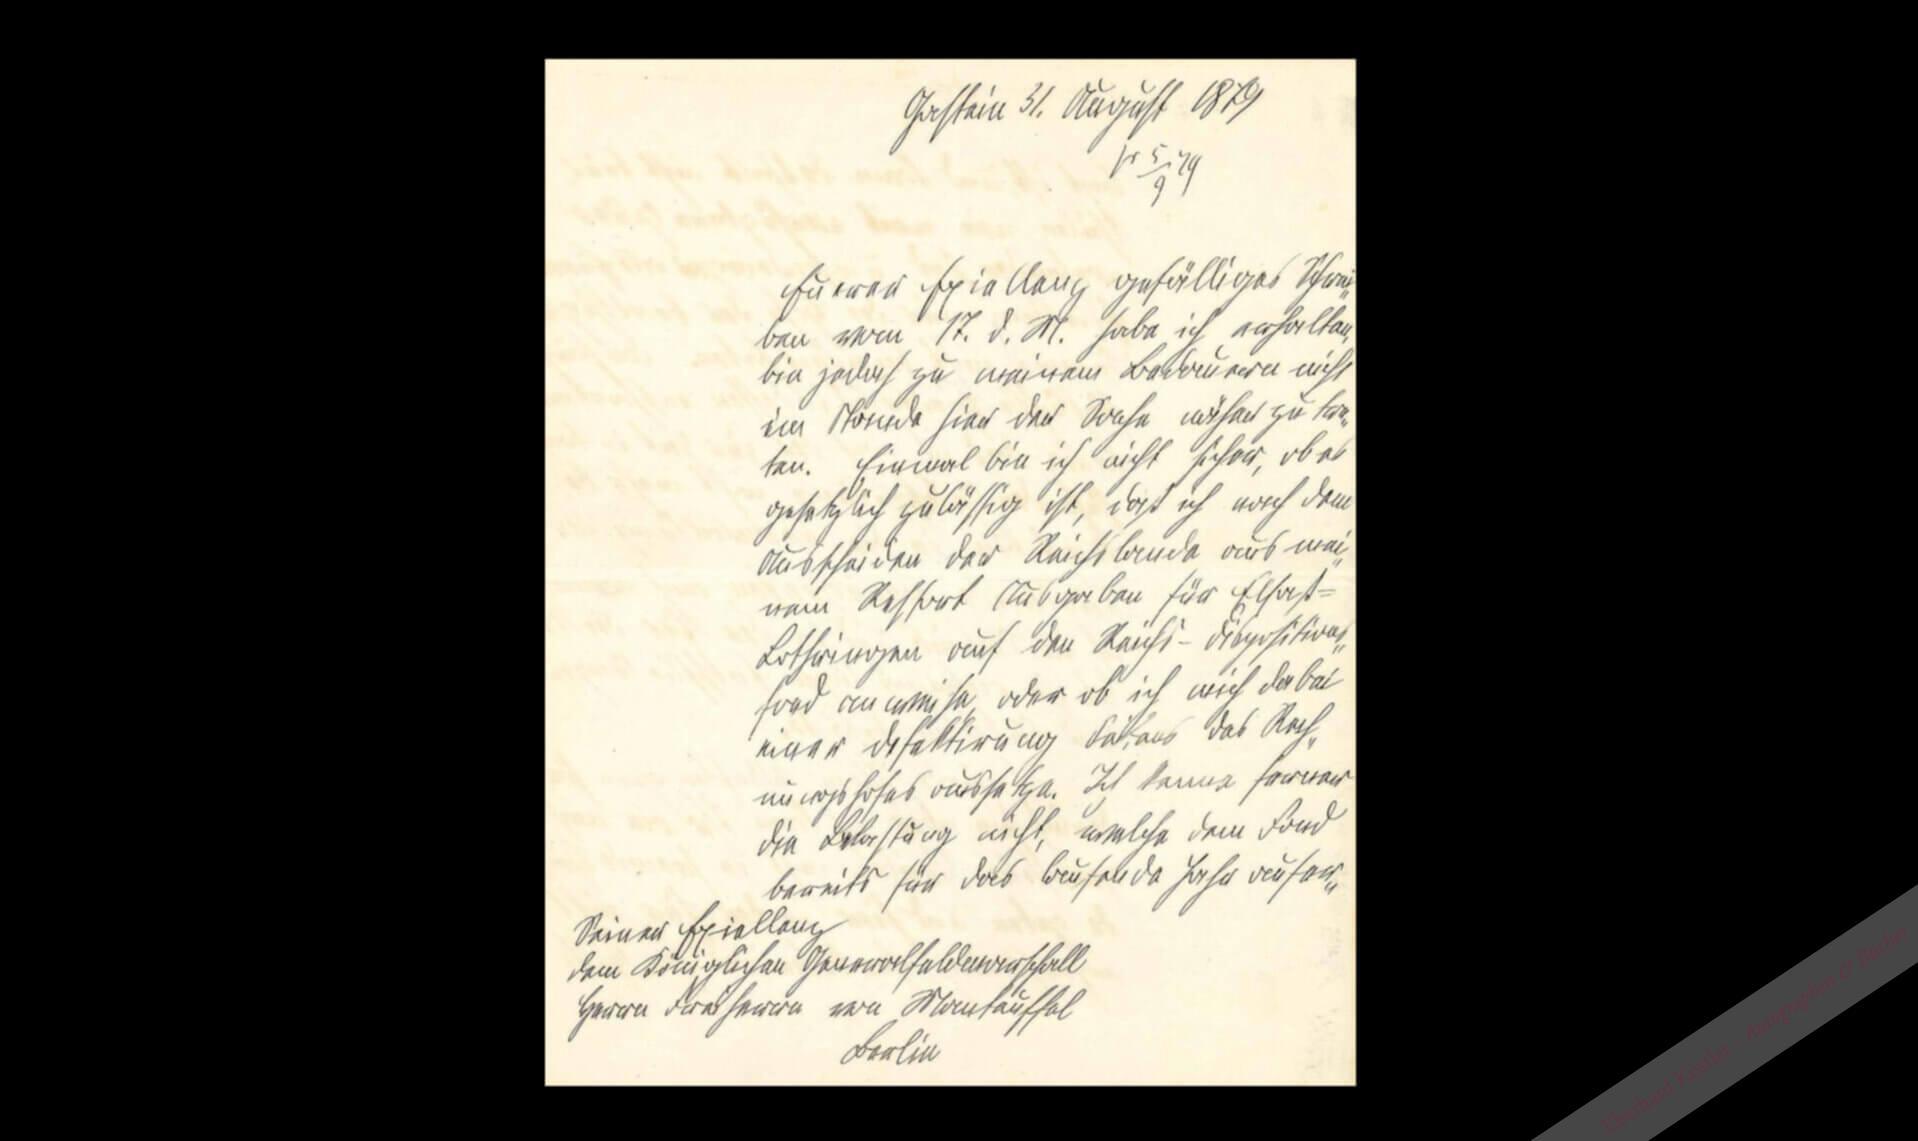 Gastein 31. August 1879
pr 5/9 79
Euerer Excellenz gefälliges Schrei„
ben vom 17. d. M. habe ich erhalten,
bin jedoch zu meinem Bedauern nicht
im Stande hier der Sache näher zu tre„
ten. Einmal bin ich nicht sicher, ob es
gesetzlich zulässig ist, daß ich nach dem
Ausscheiden der Reichslande aus mei„
nem Ressort Ausgaben für Elsaß=
Lothringen auf den Reichs-Dispositions„
fond anweise, oder ob ich mich dabei
einer Defektirung Seitens des Rech„
nungshofes aussetze. Ich kenne ferner
die Belastung nicht, welche dem Fond
bereits für das laufende Jahr aufer„
Seiner Excellenz
dem Königlichen Generalfeldmarschall
Herrn Freiherrn von Manteuffel
Berlin
Eberhard Köstler · Autographen & Bücher